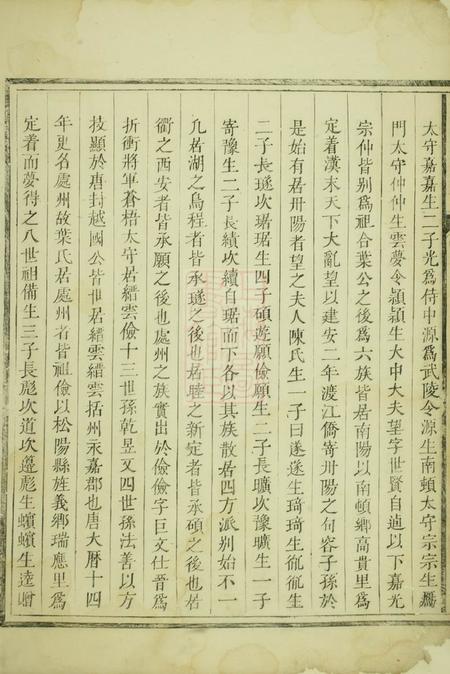 太守嘉嘉生二子光爲侍中源爲武陵令源生南頓太守宗宗生鴈
門太守仲仲生雲夢令頴頴生大中大夫望字世賢自逈以下嘉光
宗仲皆别爲祖合葉公之後爲六族皆居南陽以南頓鄉高貴里爲
定着漢末天下大亂望以建安二年渡江僑寄丹陽之句容子孫於
是始有居丹陽者望之夫人陳氏生一子曰遂遂生琦琦生㑂㑂生
二子長璲次琚琚生四子碩遊願儉願生二子長曠次豫曠生一子
寄豫生二子長績次續自琚而下各以其族散居四方派别始不一
凡若湖之烏程者皆承璲之後也居睦之新定者皆承碩之後也若
衢之西安者皆承願之後也處州之族實出於儉儉字巨文仕晉爲
折衝將軍蒼梧太守居縉雲儉十三世孫乾昱又四世孫法善以方
技顯於唐封越國公皆世居縉雲縉雲括州永嘉郡也唐大曆十四
年更名處州故葉氏居處州者皆祖儉以松陽縣旌義鄉瑞應里爲
定着而夢得之八世祖備生三子長彪次道次邊彪生蠙蠙生逵贈